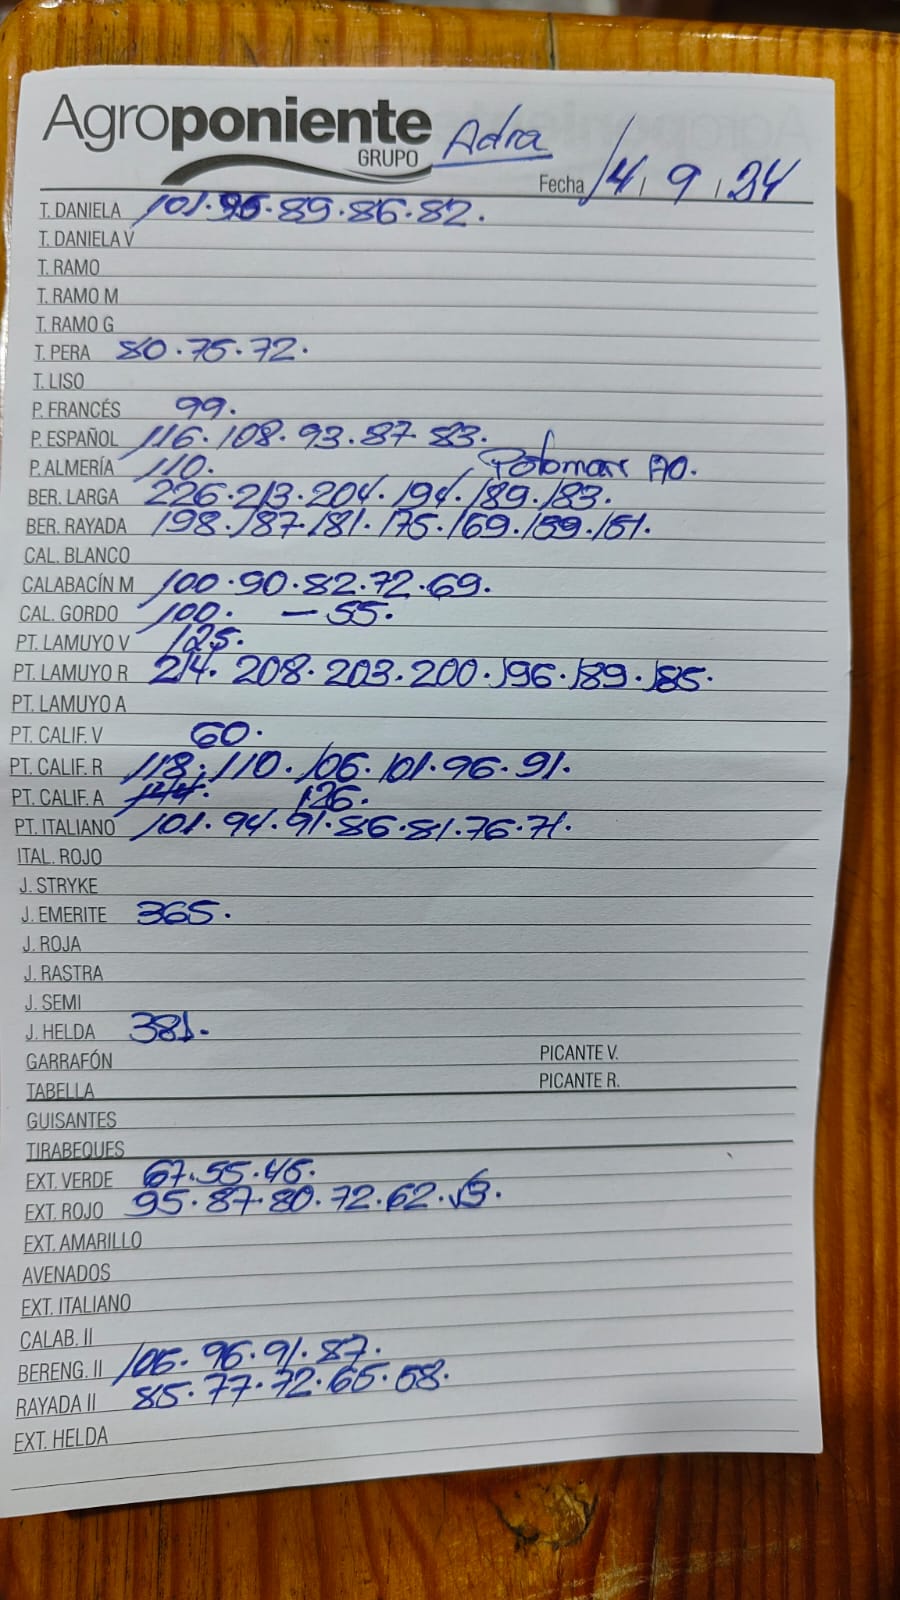 Agroponiente
GRUPO
Adra
Fecha 14 / 9 / 24
T. DANIELA 101. 96. 89. 86. 82.
T. DANIELA V
T. RAMO
T. RAMO M
T. RAMO G
T. PERA 80. 75. 72.
T. LISO
P. FRANCÉS 99.
P. ESPAÑOL 116. 108. 93. 87. 83.
P. ALMERÍA 110.
BER. LARGA 226. 213. 204. 194. 189. 183.
BER. RAYADA 198. 187. 181. 175. 169. 159. 151.
CAL. BLANCO
CALABACÍN M 100. 90. 82. 72. 69.
CAL. GORDO 100. — 55.
PT. LAMUYO V 125.
PT. LAMUYO R 214. 208. 203. 200. 196. 189. 185.
PT. LAMUYO A
PT. CALIF. V 60.
PT. CALIF. R 118. 110. 106. 101. 96. 91.
PT. CALIF. A 144. 126.
PT. ITALIANO 101. 94. 91. 86. 81. 76. 71.
ITAL. ROJO
J. STRYKE
J. EMERITE 365.
J. ROJA
J. RASTRA
J. SEMI
J. HELDA 381.
GARRAFÓN PICANTE V.
TABELLA PICANTE R.
GUISANTES
TIRABEQUES
EXT. VERDE 67. 55. 45.
EXT. ROJO 95. 87. 80. 72. 62.
EXT. AMARILLO
AVENADOS
EXT. ITALIANO
CALAB. II
BERENG. II 106. 96. 91. 87.
RAYADA II 85. 77. 72. 65. 58.
EXT. HELDA